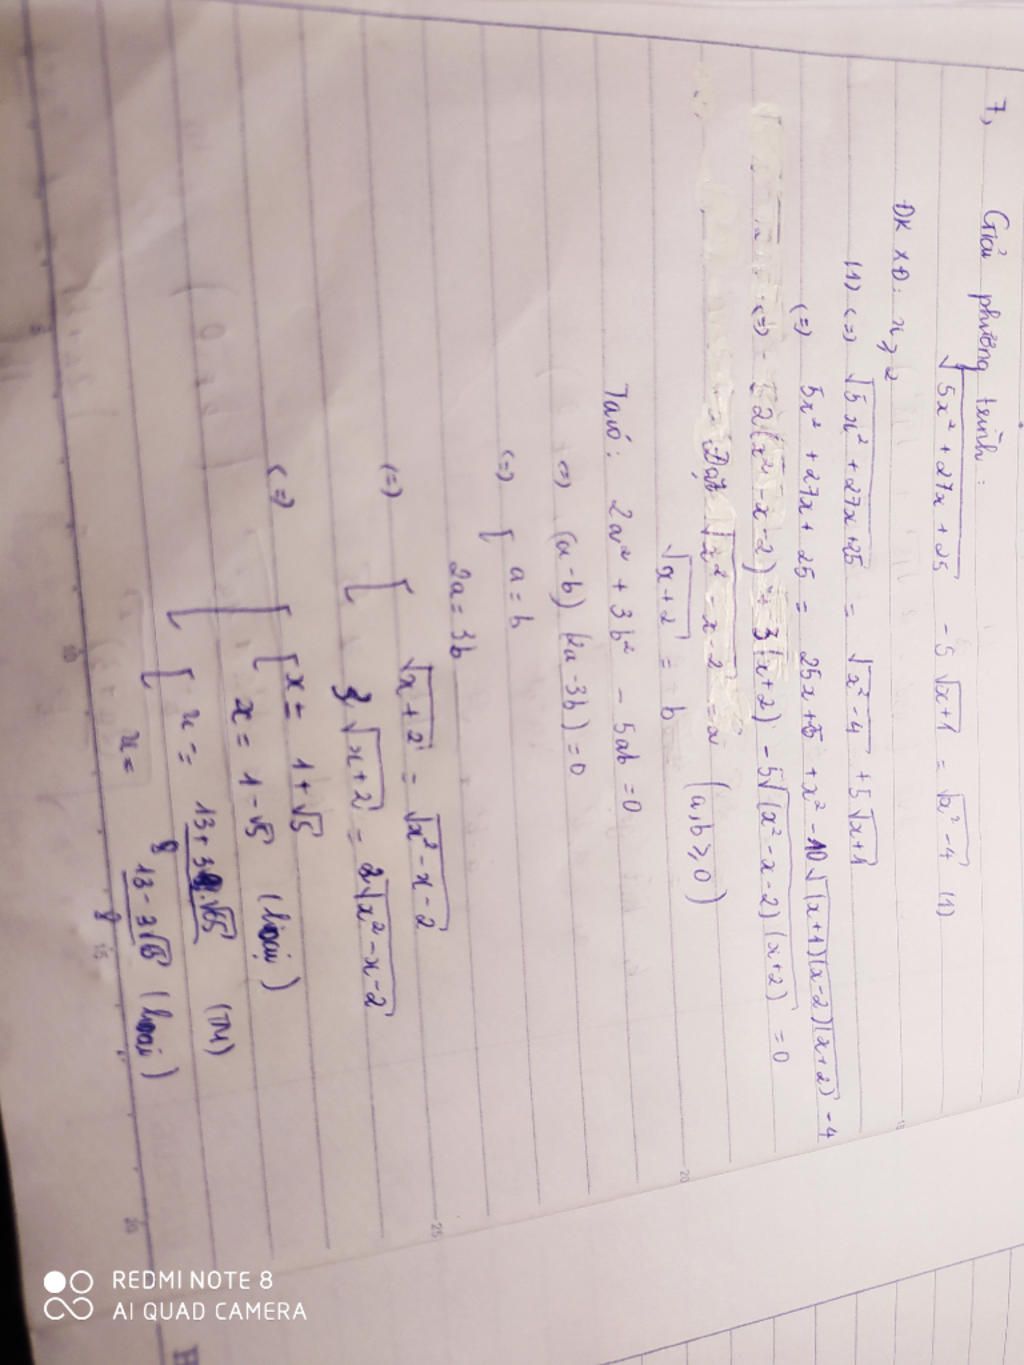 7, Giải phương trình:
√5x² + 27x + 25 - 5√x+1 = √x² - 4 (1)
ĐKXĐ: x ≥ 2
(1) (=) √5x² + 27x+25 = √x² - 4 + 5√x+1
(=) 5x² + 27x + 25 = 25x + 25 + x² - 10√(x+1)(x-2)(x+2) - 4
(=) 2(x² - x - 2) + 3(x+2) - 5√(x² - x - 2)(x+2) = 0
Đặt √x² - x - 2 = a
√x+2 = b (a,b ≥ 0)
Ta có: 2a² + 3b² - 5ab = 0
(=) (a-b)(2a-3b) = 0
(=) [ a = b
2a = 3b
(=) [ √x+2 = √x² - x - 2
3√x+2 = 2√x² - x - 2
(=) [ [ x = 1 + √5
x = 1 - √5 (loại)
[ x = 13 + 3√65 / 8 (TM)
x = 13 - 3√65 / 8 (loại)
REDMI NOTE 8
AI QUAD CAMERA